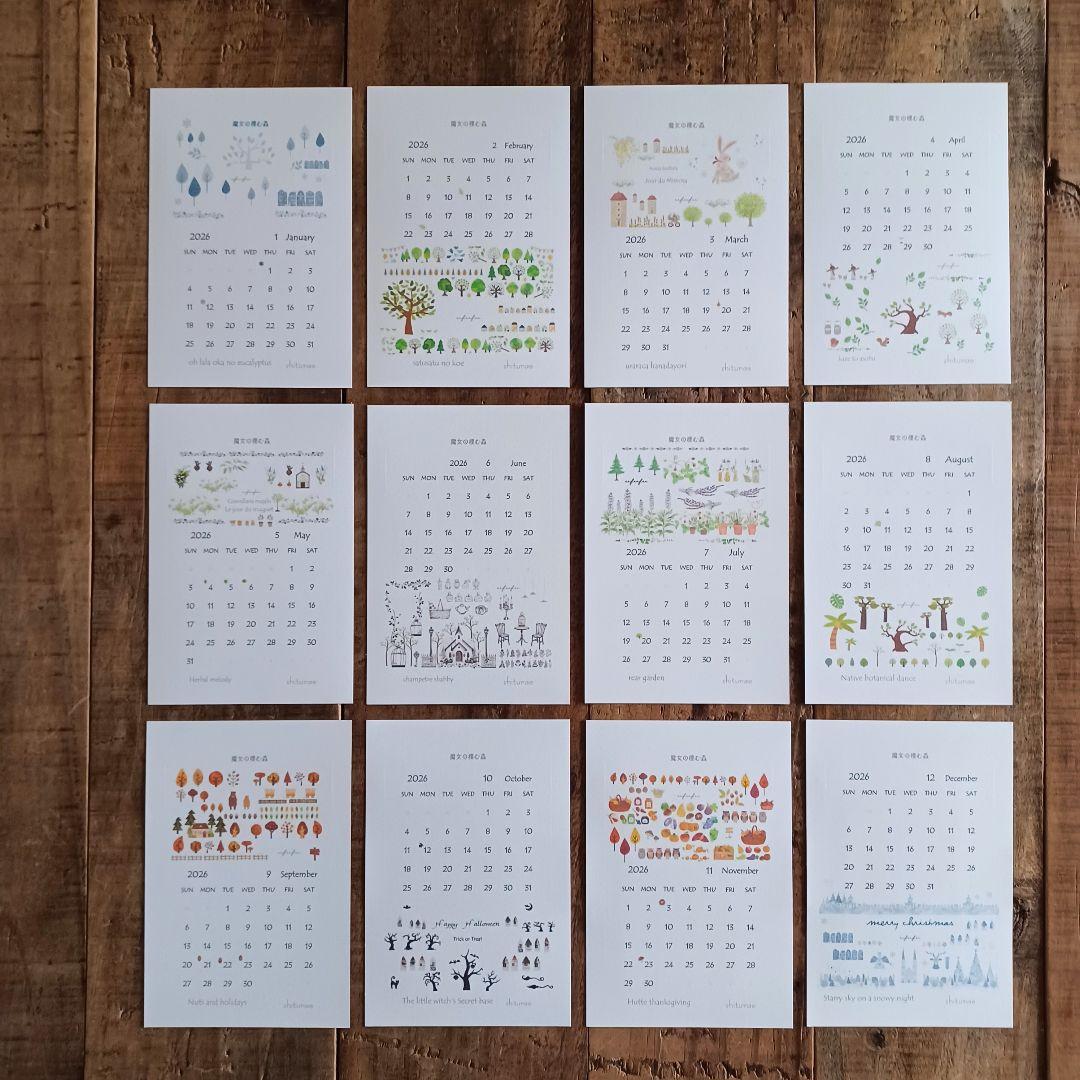 魔女の棲む森
2026 1 January
SUN MON TUE WED THU FRI SAT
1 2 3
4 5 6 7 8 9 10
11 12 13 14 15 16 17
18 19 20 21 22 23 24
25 26 27 28 29 30 31
oh lala oka no eucalyptus shitumae
魔女の棲む森
2026 2 February
SUN MON TUE WED THU FRI SAT
1 2 3 4 5 6 7
8 9 10 11 12 13 14
15 16 17 18 19 20 21
22 23 24 25 26 27 28
satusatu no koe shitumae
魔女の棲む森
Jour du Mimosa
2026 3 March
SUN MON TUE WED THU FRI SAT
1 2 3 4 5 6 7
8 9 10 11 12 13 14
15 16 17 18 19 20 21
22 23 24 25 26 27 28
29 30 31
uraraca hanadayori shitumae
魔女の棲む森
2026 4 April
SUN MON TUE WED THU FRI SAT
1 2 3 4
5 6 7 8 9 10 11
12 13 14 15 16 17 18
19 20 21 22 23 24 25
26 27 28 29 30
shitumae
魔女の棲む森
Le jour du muguet
2026 5 May
SUN MON TUE WED THU FRI SAT
1 2
3 4 5 6 7 8 9
10 11 12 13 14 15 16
17 18 19 20 21 22 23
24 25 26 27 28 29 30
31
Herbal melody shitumae
魔女の棲む森
2026 6 June
SUN MON TUE WED THU FRI SAT
1 2 3 4 5 6
7 8 9 10 11 12 13
14 15 16 17 18 19 20
21 22 23 24 25 26 27
28 29 30
champetre shabby shitumae
魔女の棲む森
2026 7 July
SUN MON TUE WED THU FRI SAT
1 2 3 4
5 6 7 8 9 10 11
12 13 14 15 16 17 18
19 20 21 22 23 24 25
26 27 28 29 30 31
rear garden shitumae
魔女の棲む森
2026 8 August
SUN MON TUE WED THU FRI SAT
1
2 3 4 5 6 7 8
9 10 11 12 13 14 15
16 17 18 19 20 21 22
23 24 25 26 27 28 29
30 31
Native botanical dance shitumae
魔女の棲む森
2026 9 September
SUN MON TUE WED THU FRI SAT
1 2 3 4 5
6 7 8 9 10 11 12
13 14 15 16 17 18 19
20 21 22 23 24 25 26
27 28 29 30
Nuts and holidays shitumae
魔女の棲む森
2026 10 October
SUN MON TUE WED THU FRI SAT
1 2 3
4 5 6 7 8 9 10
11 12 13 14 15 16 17
18 19 20 21 22 23 24
25 26 27 28 29 30 31
Happy Halloween
Trick or Treat
The little witch's Secret base shitumae
魔女の棲む森
2026 11 November
SUN MON TUE WED THU FRI SAT
1 2 3 4 5 6 7
8 9 10 11 12 13 14
15 16 17 18 19 20 21
22 23 24 25 26 27 28
29 30
Hutte thanksgiving shitumae
魔女の棲む森
2026 12 December
SUN MON TUE WED THU FRI SAT
1 2 3 4 5
6 7 8 9 10 11 12
13 14 15 16 17 18 19
20 21 22 23 24 25 26
27 28 29 30 31
merry christmas
Starry sky on a snowy night shitumae